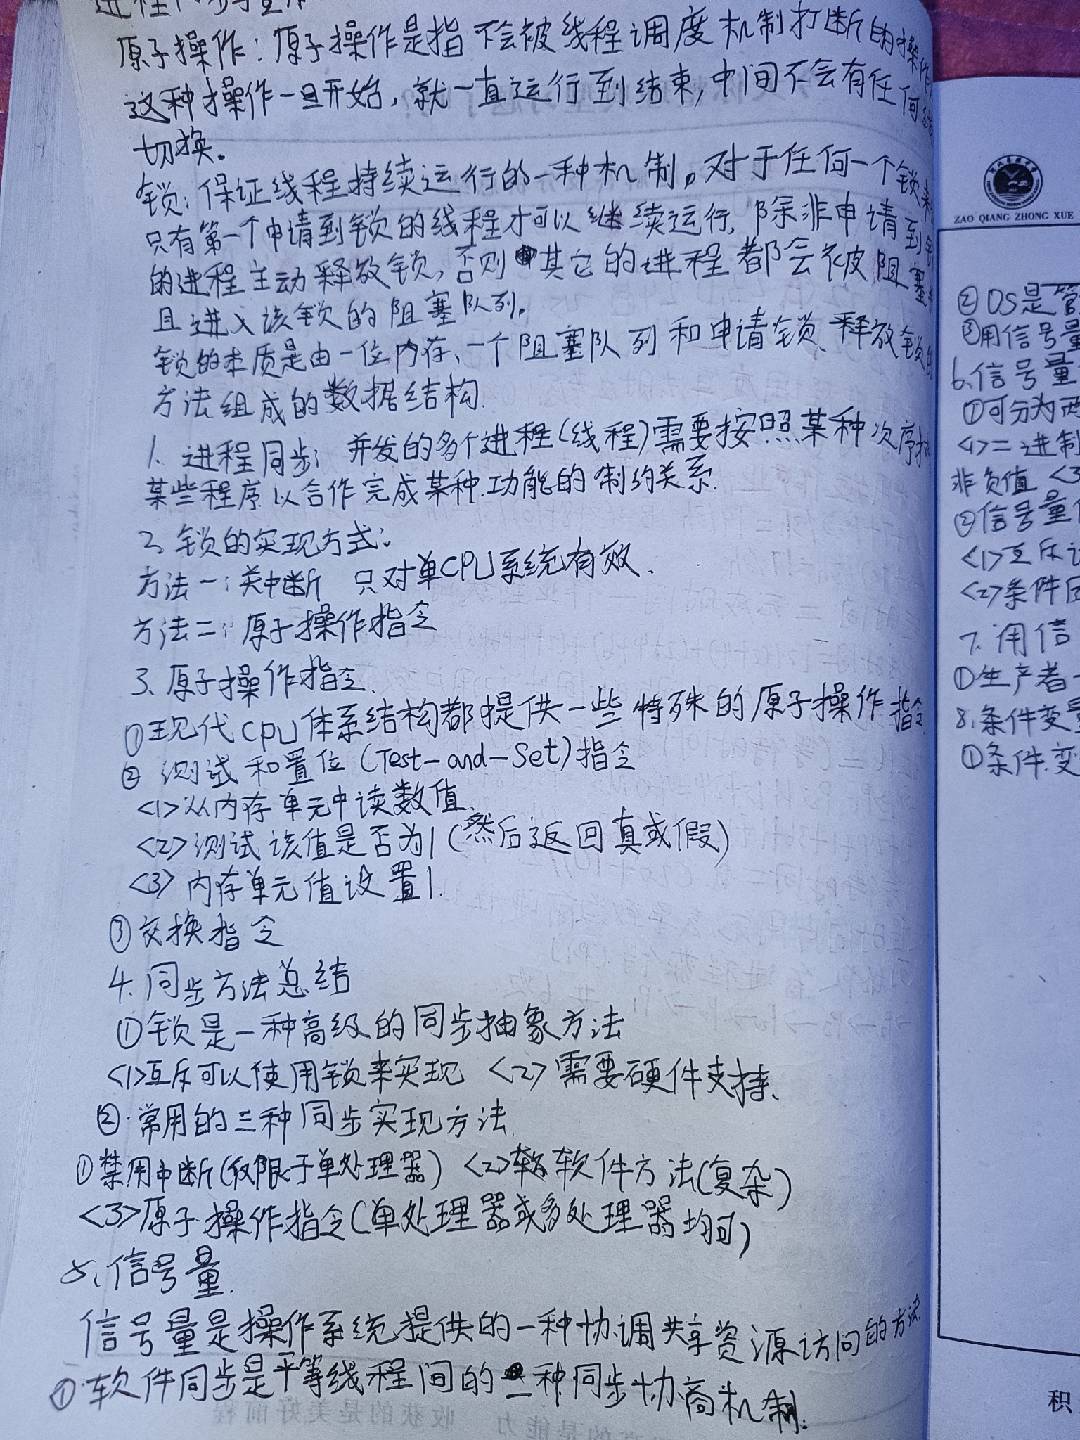 原子操作:原子操作是指不会被线程调度机制打断的操作
这种操作一旦开始,就一直运行到结束,中间不会有任何
切换。
锁:保证线程持续运行的一种机制,对于任何一个锁来
只有第一个申请到锁的线程才可以继续运行,除非申请到
的进程主动释放锁,否则其它的进程都会被阻塞
且进入该锁的阻塞队列。
锁的本质是由一位内存、一个阻塞队列和申请锁、释放锁的
方法组成的数据结构.
1. 进程同步: 并发的多个进程(线程)需要按照某种次序
某些程序以合作完成某种功能的制约关系.
2. 锁的实现方式:
方法一:关中断 只对单CPU系统有效.
方法二:原子操作指令
3、原子操作指令.
①现代CPU体系结构都提供一些特殊的原子操作指令
② 测试和置位(Test-and-Set)指令
<1>从内存单元中读数值.
<2>测试该值是否为1(然后返回真或假)
<3>内存单元值设置1.
③交换指令
4.同步方法总结
①锁是一种高级的同步抽象方法
<1>互斥可以使用锁来实现 <2>需要硬件支持.
②.常用的三种同步实现方法
①禁用中断(仅限于单处理器) <2>软件方法(复杂)
<3>原子操作指令(单处理器或多处理器均可)
5、信号量.
信号量是操作系统提供的一种协调共享资源访问的方法
①软件同步是平等线程间的一种同步协商机制.
ZAO QIANG ZHONG XUE
②OS是管
③用信号量
6.信号量
①可分为两
<1>二进制
非负值 <3
②信号量
<1>互斥
<2>条件同
7.用信
①生产者-
8.条件变量
①条件变
积